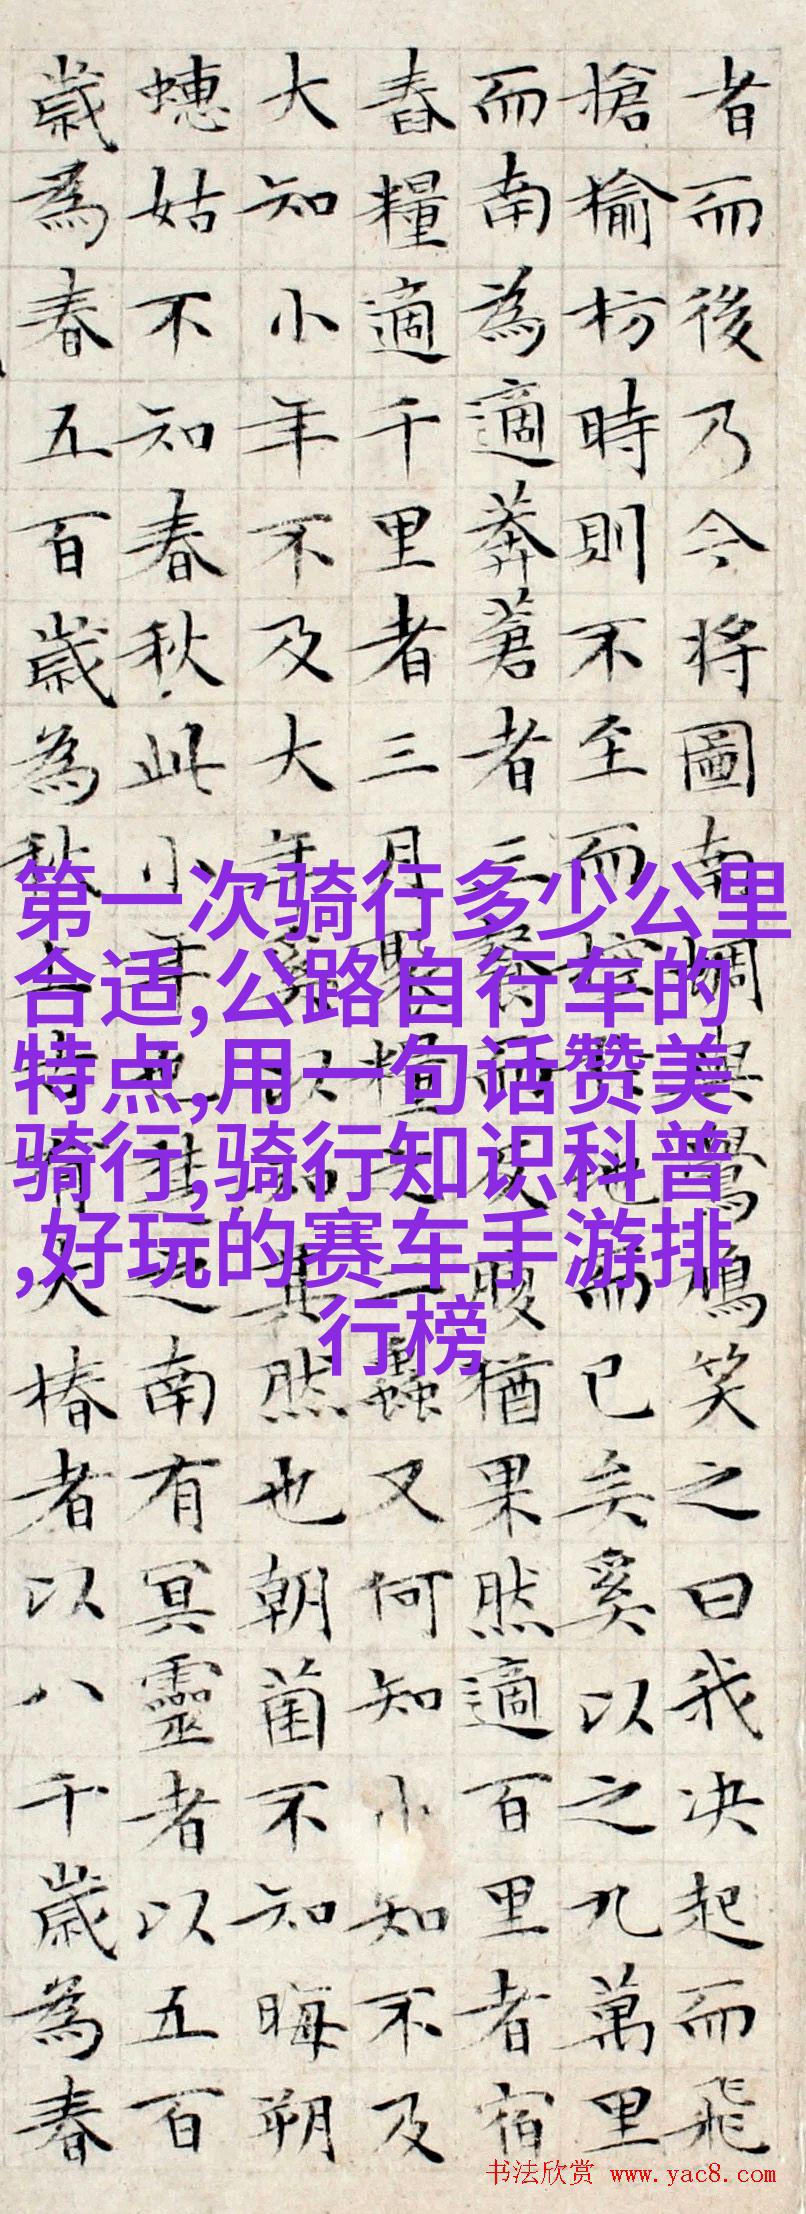 者而後乃今将圖南蜩與鷽鳩笑之曰我決起而飛
搶榆枋時則不至而控於地而已矣奚以之九萬里
而南為適莽蒼者三飡而反腹猶果然適百里者宿
舂糧適千里者三月聚糧之二蟲又何知小知不及
大知小年不及大年奚以知其然也朝菌不知晦朔
蟪姑不知春秋此小年也楚之南有冥靈者以五百
歲為春五百歲為秋上古有大椿者以八千歲為春
第一次骑行多少公里
合适,公路自行车的
特点,用一句话赞美
骑行,骑行知识科普
,好玩的赛车手游排
行榜
书法欣赏 www.yac8.com